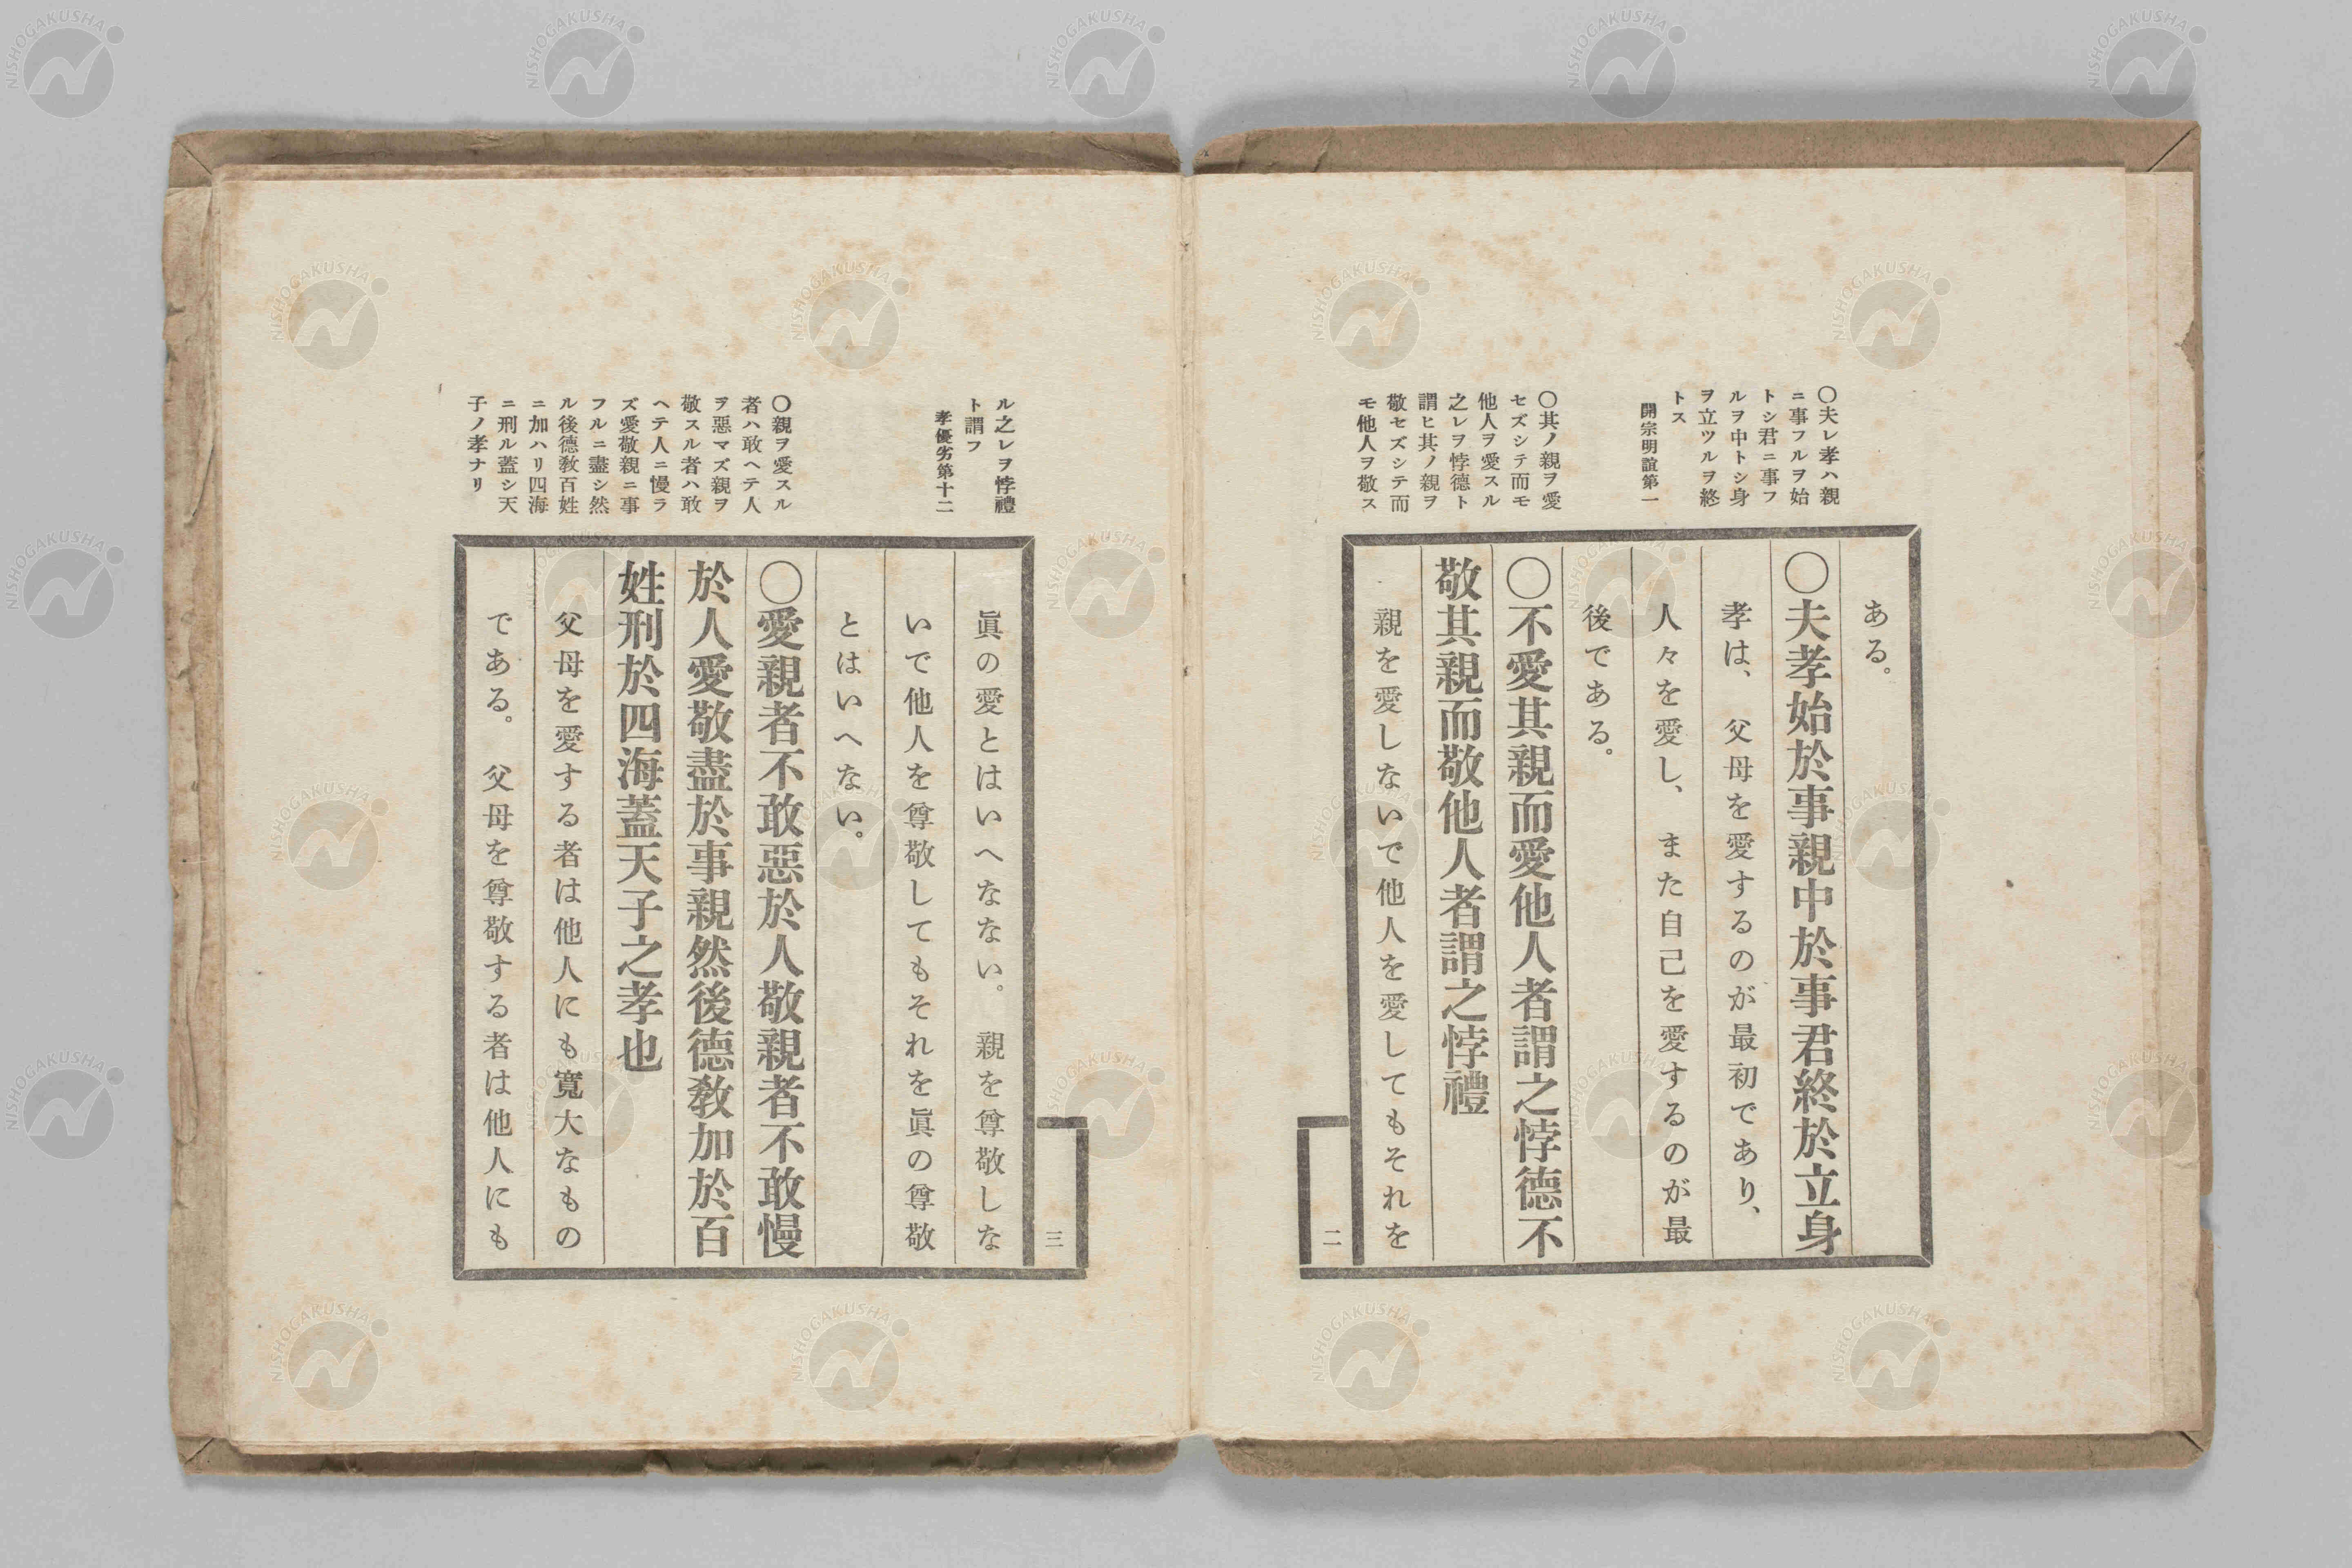 〇夫レ孝ハ親
ニ事フルヲ始
トシ君ニ事フ
ルヲ中トシ身
ヲ立ツルヲ終
トス
開宗明誼第一
〇其ノ親ヲ愛
セズシテ而モ
他人ヲ愛スル
之レヲ悖德ト
謂ヒ其ノ親ヲ
敬セズシテ而
モ他人ヲ敬ス
ある。
〇夫孝始於事親中於事君終於立身
孝は、父母を愛するのが最初であり、
人々を愛し、また自己を愛するのが最
後である。
〇不愛其親而愛他人者謂之悖德不
敬其親而敬他人者謂之悖禮
親を愛しないで他人を愛してもそれを
二
ル之レヲ悖禮
ト謂フ
孝優劣第十二
〇親ヲ愛スル
者ハ敢ヘテ人
ヲ惡マズ親ヲ
敬スル者ハ敢
ヘテ人ニ慢ラ
ズ愛敬親ニ事
フルニ盡シ然
ル後德敎百姓
ニ加ハリ四海
ニ刑ル蓋シ天
子ノ孝ナリ
眞の愛とはいへなない。親を尊敬しな
いで他人を尊敬してもそれを眞の尊敬
とはいへない。
〇愛親者不敢惡於人敬親者不敢慢
於人愛敬盡於事親然後德敎加於百
姓刑於四海蓋天子之孝也
父母を愛する者は他人にも寬大なもの
である。父母を尊敬する者は他人にも
三
NISHOGAKUSHA